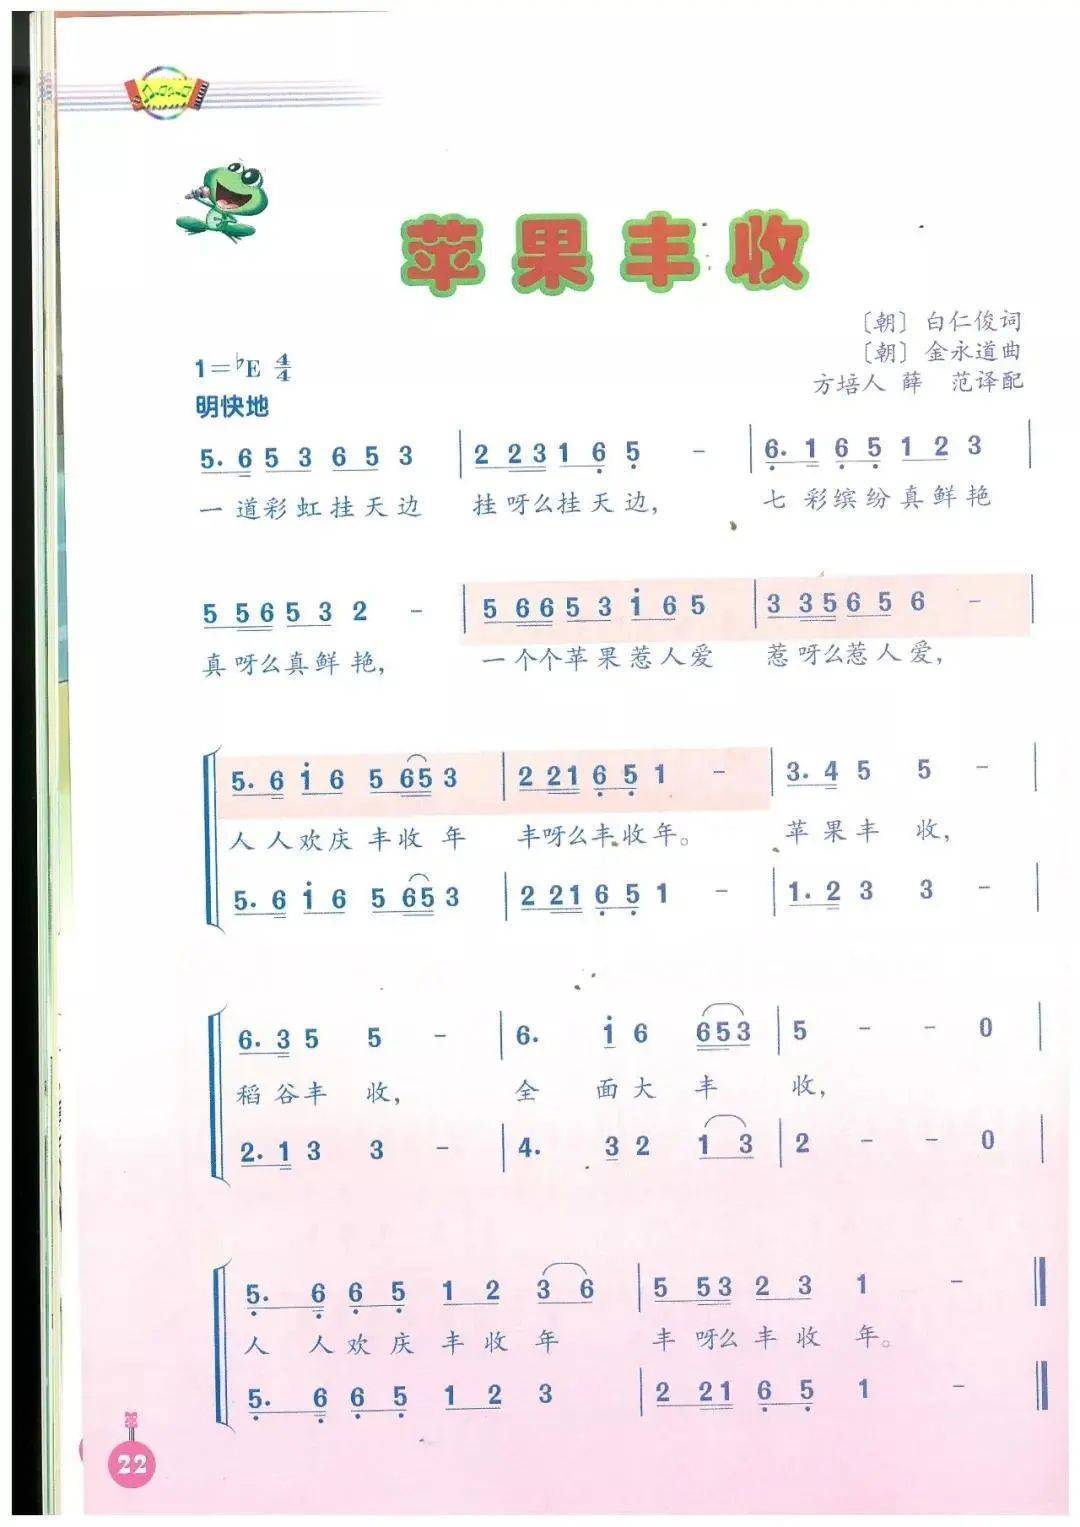 苹果丰收
〔朝〕白仁俊词
〔朝〕金永道曲
方培人 薛 范译配
1=♭E 4/4
明快地
5. 6 5 3 6 5 3 | 2 2 3 1 6̣ 5̣ - | 6̣. 1 6̣ 5̣ 1 2 3 |
一道彩虹挂天边 挂呀么挂天边， 七彩缤纷真鲜艳
5 5 6 5 3 2 - | 5 6 6 5 3 1̇ 6 5 | 3 3 5 6 5 6 - |
真呀么真鲜艳， 一个个苹果惹人爱 惹呀么惹人爱，
5. 6 1̇ 6 5 6 5 3 | 2 2 1 6̣ 5̣ 1 - | 3. 4 5 5 - |
人人欢庆丰收年 丰呀么丰收年。 苹果丰收，
5. 6 1̇ 6 5 6 5 3 | 2 2 1 6̣ 5̣ 1 - | 1. 2 3 3 - |
6. 3 5 5 - | 6. 1̇ 6 6 5 3 | 5 - - 0 |
稻谷丰收， 全面大丰收，
2. 1 3 3 - | 4. 3 2 1 3 | 2 - - 0 |
5̣. 6̣ 6̣ 5̣ 1 2 3 6 | 5 5 3 2 3 1 - ‖
人人欢庆丰收年 丰呀么丰收年。
5̣. 6̣ 6̣ 5̣ 1 2 3 | 2 2 1 6̣ 5̣ 1 - ‖
22